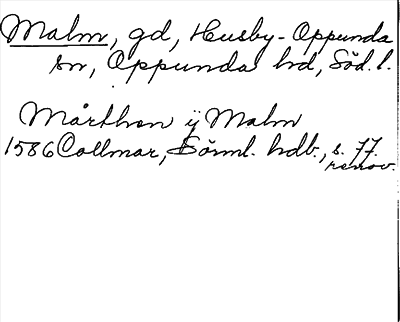 Malm, gd, Husby-Oppunda
sn, Oppunda hd, Söd. l.
Mårthen ÿ Malm
1586 Collmar, Sörml. hdb., s. 77.
renov.